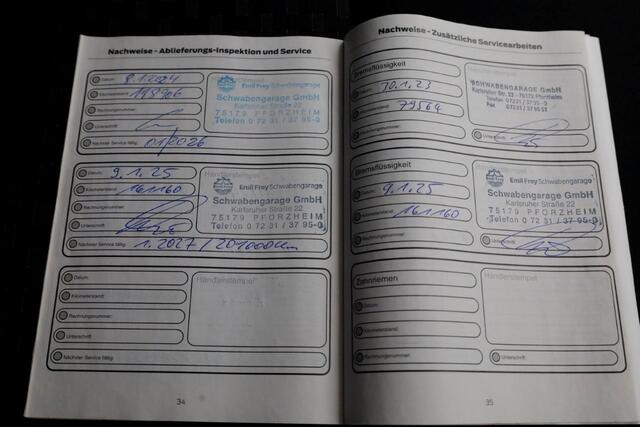 Nachweise - Ablieferungs-Inspektion und Service
Datum: 8.1.2024
Kilometerstand:
Rechnungsnummer:
Unterschrift
Nächster Service fällig: 01/2026
Händlerstempel
Emil Frey Schwabengarage
Schwabengarage GmbH
Karlsruher Straße 22
75179 PFORZHEIM
Telefon 0 72 31 / 37 95-0
Datum: 9.1.25
Kilometerstand: 161160
Rechnungsnummer:
Unterschrift
Nächster Service fällig: 1.2027 / 201000km
Händlerstempel
Emil Frey Schwabengarage
Schwabengarage GmbH
Karlsruher Straße 22
75179 PFORZHEIM
Telefon 0 72 31 / 37 95-0
Datum:
Kilometerstand:
Rechnungsnummer:
Unterschrift
Nächster Service fällig:
Händlerstempel
34
Nachweise - Zusätzliche Servicearbeiten
Bremsflüssigkeit
Datum: 10.1.23
79564
Händlerstempel
SCHWABENGARAGE GmbH
Karlsruher Str. 22 - 75179 Pforzheim
Tel. 07231/37 95-0
Fax
Unterschrift
Bremsflüssigkeit
Datum: 9.1.25
Kilometerstand: 161160
Rechnungsnummer:
Händlerstempel
Emil Frey Schwabengarage
Schwabengarage GmbH
Karlsruher Straße 22
75179 PFORZHEIM
Telefon 0 72 31 / 37 95-0
Unterschrift
Zahnriemen
Datum:
Kilometerstand:
Rechnungsnummer:
Händlerstempel
Unterschrift
35